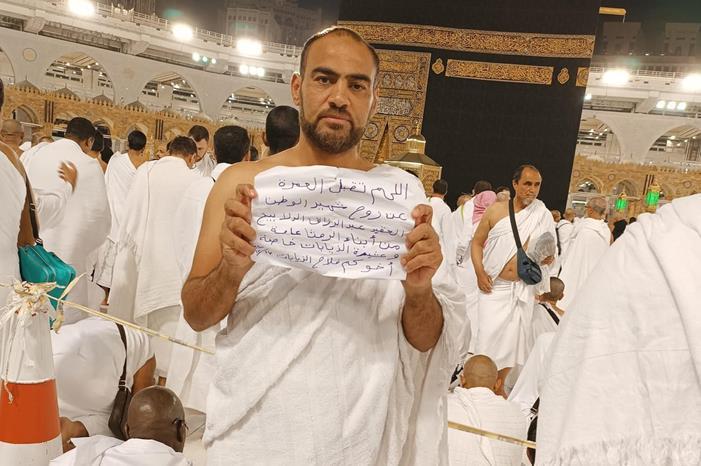 اللهم تقبل العمرة
عن روح شهيد الوطن
العقيد عبدالرزاق الدلابيح
من أبناء الرمثا عامة
وعشيرة الذيابات خاصة
أخوكم فلاح الذيابات